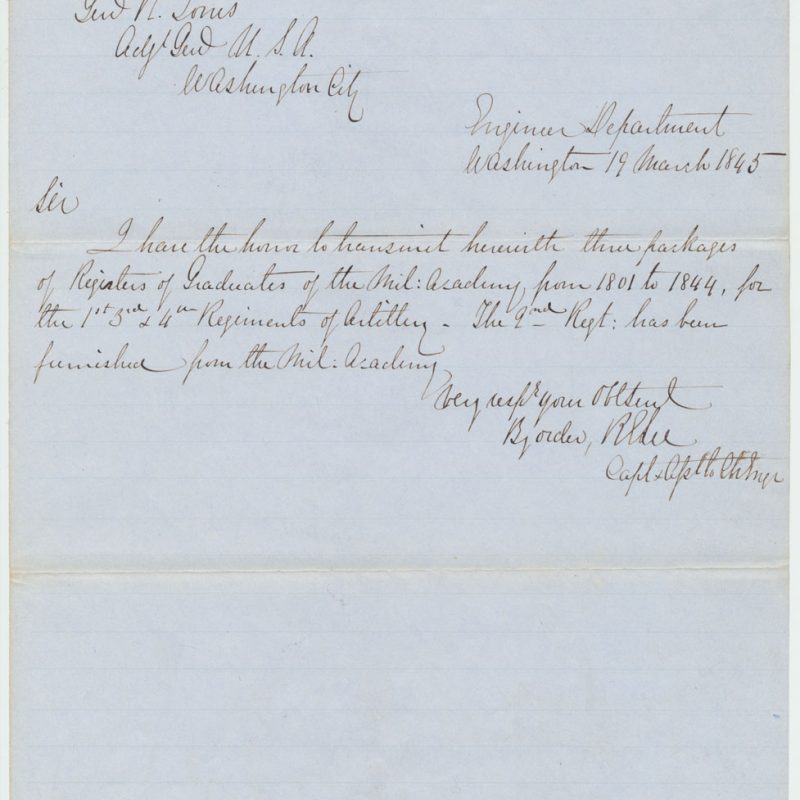 Genl R. Jones
Adjt Genl U. S. A.
Washington City
Engineer Department
Washington 19 March 1845
Sir
I have the honor to transmit herewith three packages
of Registers of Graduates of the Mil: Academy, from 1801 to 1844, for
the 1st 3rd & 4th Regiments of Artillery - The 2nd Regt: has been
furnished from the Mil: Academy
Very respy your Obt Servt
By order, R E Lee
Capt & Asst to Ch Engr